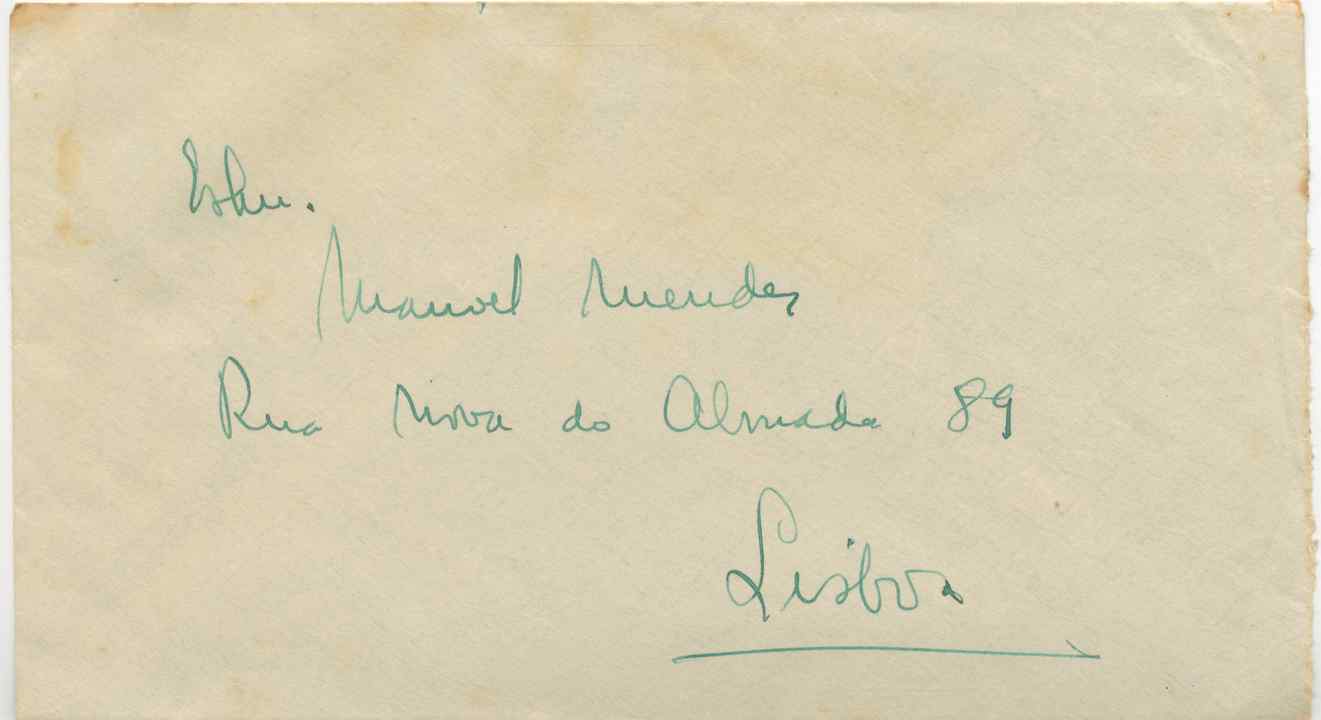 Manuel Mendes
Rua Nova do Almada 89
Lisboa